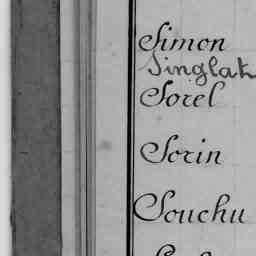 Simon
Singlak
Sorel
Sorin
Souchu